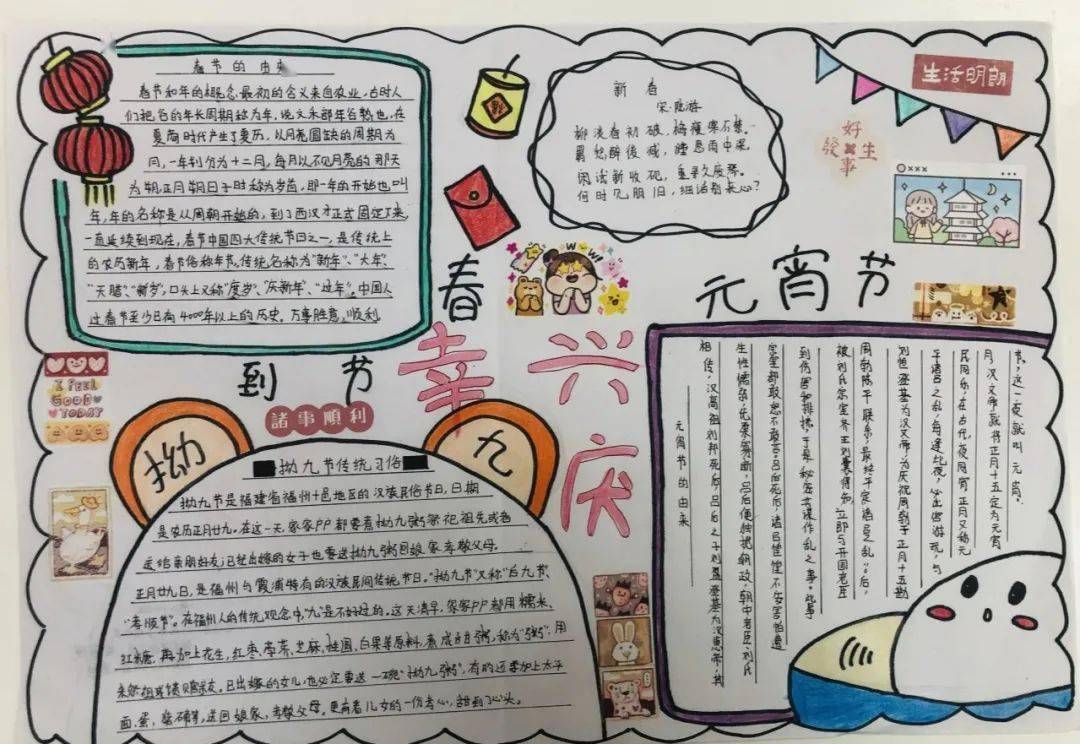 春节的由
春节和年的概念,最初的含义来自农业,古时人
们把谷的生长周期称为年,说文禾部年谷熟也,在
夏商时代产生了夏历,以月亮圆缺的周期为
月,一年划分为十二月,每月以不见月亮的那天
为朔,正月朔日子时称为岁首,即一年的开始也叫
年,年的名称是从周朝开始的,到了西汉才正式固定下来,
一直延续到现在,春节中国四大传统节日之一,是传统上
的农历新年,春节俗称年节,传统名称为"新年"、"大年"、
"天腊"、"新岁",口头上又称"度岁"、"庆新年"、"过年"。中国人
过春节至少已有4000年以上的历史。万事胜意,顺利
福
新春
宋
柳淡春初破,梅瘦
醉後减,睡思雨中
闲试新收砚,
何时
生活明朗
好
發生
事
×××
春
到节
元宵节
幸
兴
庆
諸事順利
I FEEL
GOOD
TODAY
W W!
拗
九
拗九节传统习俗
拗九节是福建省福州十邑地区的汉族民俗节日,日期
是农历正月廿九。在这一天家家户户都要煮拗九粥祭祀祖先或者
送给亲朋好友;已经出嫁的女子也要送拗九粥回娘家孝敬父母。
正月廿九日,是福州与霞浦特有的汉族民间传统节日。"拗九节"又称"后九节"、
"孝顺节"。在福州人的传统观念中,"九"是不好过的。这天清早,家家户户都用糯米、
红糖,再加上花生,红枣、荸荠、芝麻,桂圆,白果等原料,煮成甜粥,称为"粥",用
来祭祖或馈赠亲友。已出嫁的女儿,也必定要送一碗"拗九粥",有的还要加上太平
面、蛋,猪蹄等,送回娘家,孝敬父母。更有着儿女的一份孝心,甜到了心头。
元宵节的由来
相传,汉高祖刘邦死后,吕后之子刘盈登基为汉惠帝,其
生性懦弱,优柔寡断,吕后便独揽朝政,朝中老臣,刘氏
宗室都敢怒不敢言,吕后死后,诸吕惶惶不安害怕遭
到伤害和排挤,于是秘密共谋作乱之事。此事
被刘氏宗室齐王刘襄得知,立即与开国老臣
周勃陈平联系,最终平定"诸吕之乱"后,
刘恒登基为汉文帝,为庆祝周勃于正月十五勘
平诸吕之乱,每逢此夜,必出宫游玩,与
民同乐,在古代,夜同宵,正月又称元
月,汉文帝就将正月十五定为元宵
节,这一夜就叫元宵。